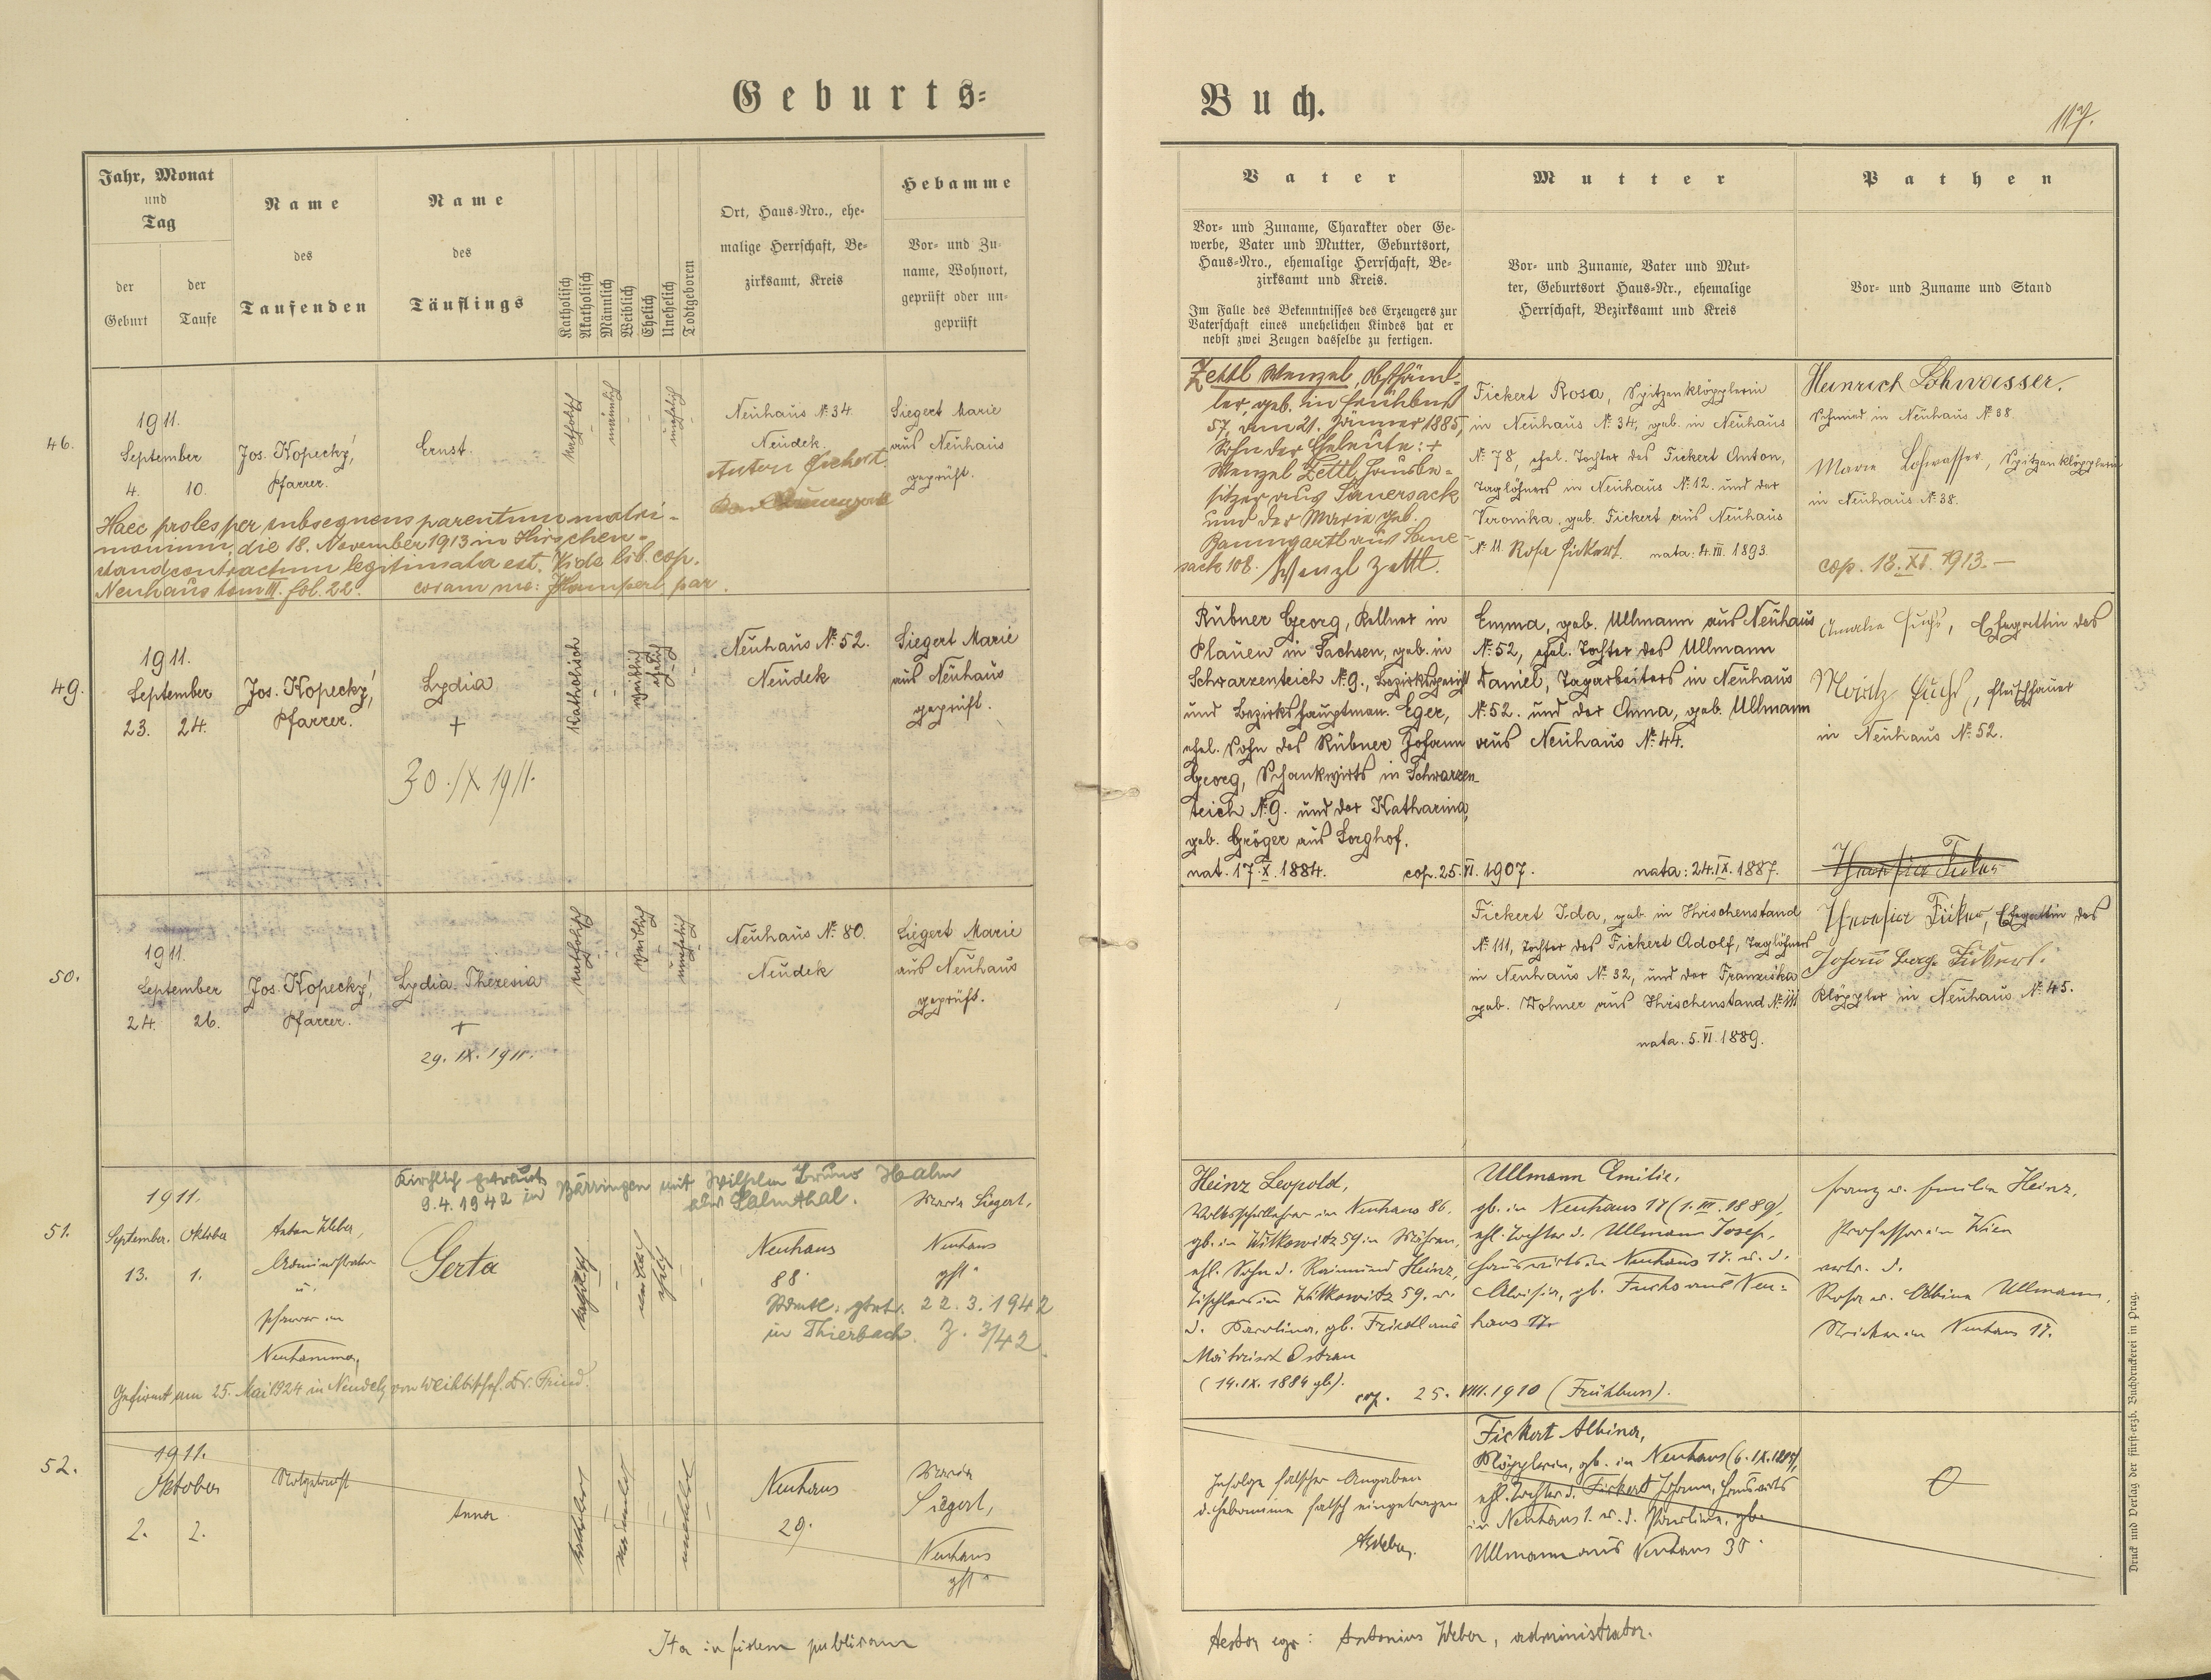 Geburts=
Buch.
117.
Jahr, Monat
und
Tag
der
Geburt
der
Taufe
Name
des
Taufenden
Name
des
Täuflings
Katholisch
Akatholisch
Männlich
Weiblich
Ehelich
Unehelich
Todtgeboren
Ort, Haus-Nro., ehe-
malige Herrschaft, Be-
zirksamt, Kreis
Hebamme
Vor- und Zu-
name, Wohnort,
geprüft oder un-
geprüft
Vater
Vor- und Zuname, Charakter oder Ge-
werbe, Vater und Mutter, Geburtsort,
Haus-Nro., ehemalige Herrschaft, Be-
zirksamt und Kreis.
Im Falle des Bekenntnisses des Erzeugers zur
Vaterschaft eines unehelichen Kindes hat er
nebst zwei Zeugen dasselbe zu fertigen.
Mutter
Vor- und Zuname, Vater und Mut-
ter, Geburtsort Haus-Nr., ehemalige
Herrschaft, Bezirksamt und Kreis
Pathen
Vor- und Zuname und Stand
46.
1911.
September
4. 10.
Jos. Kopecký,
Pfarrer.
Ernst.
katholisch
männlich
unehelich
Neuhaus No. 34.
Neudek.
Anton Fickert.
Siegert Marie
aus Neuhaus
geprüft.
Haec proles per subsequens parentum matri-
monium, die 18. November 1913 in Hirschen-
stand contractum legitimata est. Vide lib. cop.
Neuhaus tom III. fol. 22. coram me: Hamperl, par.
Zettl Wenzel, Obsthänd-
ler, geb. in Frühbuß
57, am 21. Jänner 1885,
Sohn der Eheleute: +
Wenzel Zettl, Hausbe-
sitzer aus Sauersack
und der Marie geb.
Baumgartl aus Saue-
sack 108. Wenzl Zettl.
Fickert Rosa, Spitzenklöpplerin
in Neuhaus No. 34, geb. in Neuhaus
No. 78, ehel. Tochter des Fickert Anton,
Taglöhners in Neuhaus No. 12. und der
Veronika, geb. Fickert aus Neuhaus
No. 11. Rosa Fickert. nata: 4. III. 1893.
Heinrich Lohwasser.
Schmied in Neuhaus No. 38.
Marie Lohwasser, Spitzenklöpplerin
in Neuhaus No. 38.
cop. 18. XI. 1913.—
49.
1911.
September
23. 24.
Jos. Kopecký,
Pfarrer.
Lydia
+
30. IX 1911.
Katholisch
weiblich
ehelich
Neuhaus No. 52.
Neudek
Siegert Marie
aus Neuhaus
geprüft.
Rubner Georg, Kellner in
Plauen in Sachsen, geb. in
Schwarzenteich No. 9., Bezirksgericht
und Bezirkshauptman. Eger,
ehel. Sohn des Rubner Johann
Georg, Schankwirts in Schwarzen-
teich No. 9. und der Katharina,
geb. Gröger aus Sorghof.
nat. 17. X. 1884. cop. 25. VI. 1907.
Emma, geb. Ullmann aus Neuhaus
No. 52, ehel. Tochter des Ullmann
Daniel, Tagarbeiters in Neuhaus
No. 52. und der Anna, geb. Ullmann
aus Neuhaus No. 44.
nata: 24. IX. 1887.
Amalie Fuchs, Ehegattin des
Moritz Fuchs, Fleischhauer
in Neuhaus No. 52.
50.
1911.
September
24. 26.
Jos. Kopecký,
Pfarrer.
Lydia Theresia
+
29. IX. 1911.
katholisch
weiblich
unehelich
Neuhaus No. 80.
Neudek
Siegert Marie
aus Neuhaus
geprüft.
Fickert Ida, geb. in Hirschenstand
No. 111, Tochter des Fickert Adolf, Taglöhners
in Neuhaus No. 32, und der Franziska
geb. Dohner aus Hirschenstand No. 111
nata. 5. VI. 1889.
Ehegattin des
Klöppler in Neuhaus No. 45.
51.
Kirchlich getraut
9.4.1942 in Bärringen mit Wilhelm Bruno Halm
aus Salmthal.
1911.
September. Oktober
13. 1.
Anton Weber,
Administrator
u.
Pfarrer in
Neuhammer
Gerta
katholisch
weiblich
ehelich
Neuhaus
88.
Standl. getr. 22.3.1942
in Thierbach. Z. 3/42.
Maria Siegert,
Neuhaus
gft.
Gefirmt am 25. Mai 1924 in Neudek, von Weihbischof Dr. Frind.
Heinz Leopold,
Volksschullehrer in Neuhaus 86.
gb. in Witkowitz 59 in Mähren,
ehl. Sohn d. Raimund Heinz,
Tischlers in Witkowitz 59. u.
d. Karolina, gb. Friedl aus
Mährisch Ostrau
(14. IX. 1884 gb.).
cop. 25. VIII. 1910 (Frühbuss).
Ullmann Emilie,
gb. in Neuhaus 17 (1. III. 1889),
ehl. Tochter d. Ullmann Josef,
Hauswirts in Neuhaus 17. u. d.
Aloisia, gb. Fuchs aus Neu-
haus 17.
Franz u. Emilie Heinz,
Professor in Wien
vertr. d.
Rosa u. Albine Ullmann,
in Neuhaus 17.
52.
1911.
Oktober
2. 2.
Notgetauft
Anna
katholisch
unehelich
Neuhaus
29.
Maria
Siegert,
Neuhaus
gft.
Infolge falscher Angaben
d. Hebamme falsch eingetragen
AWeber.
Fickert Albina,
Klöpplerin, gb. in Neuhaus
ehl. Tochter d. Fickert Johann, Hauswirts
in Neuhaus 1. u. d. Paulina, gb.
Ullmann aus Neuhaus 30.
Ita in fidem publicam
testor ego: Antonius Weber, administrator.
Druck und Verlag der fürst-erzb. Buchdruckerei in Prag.